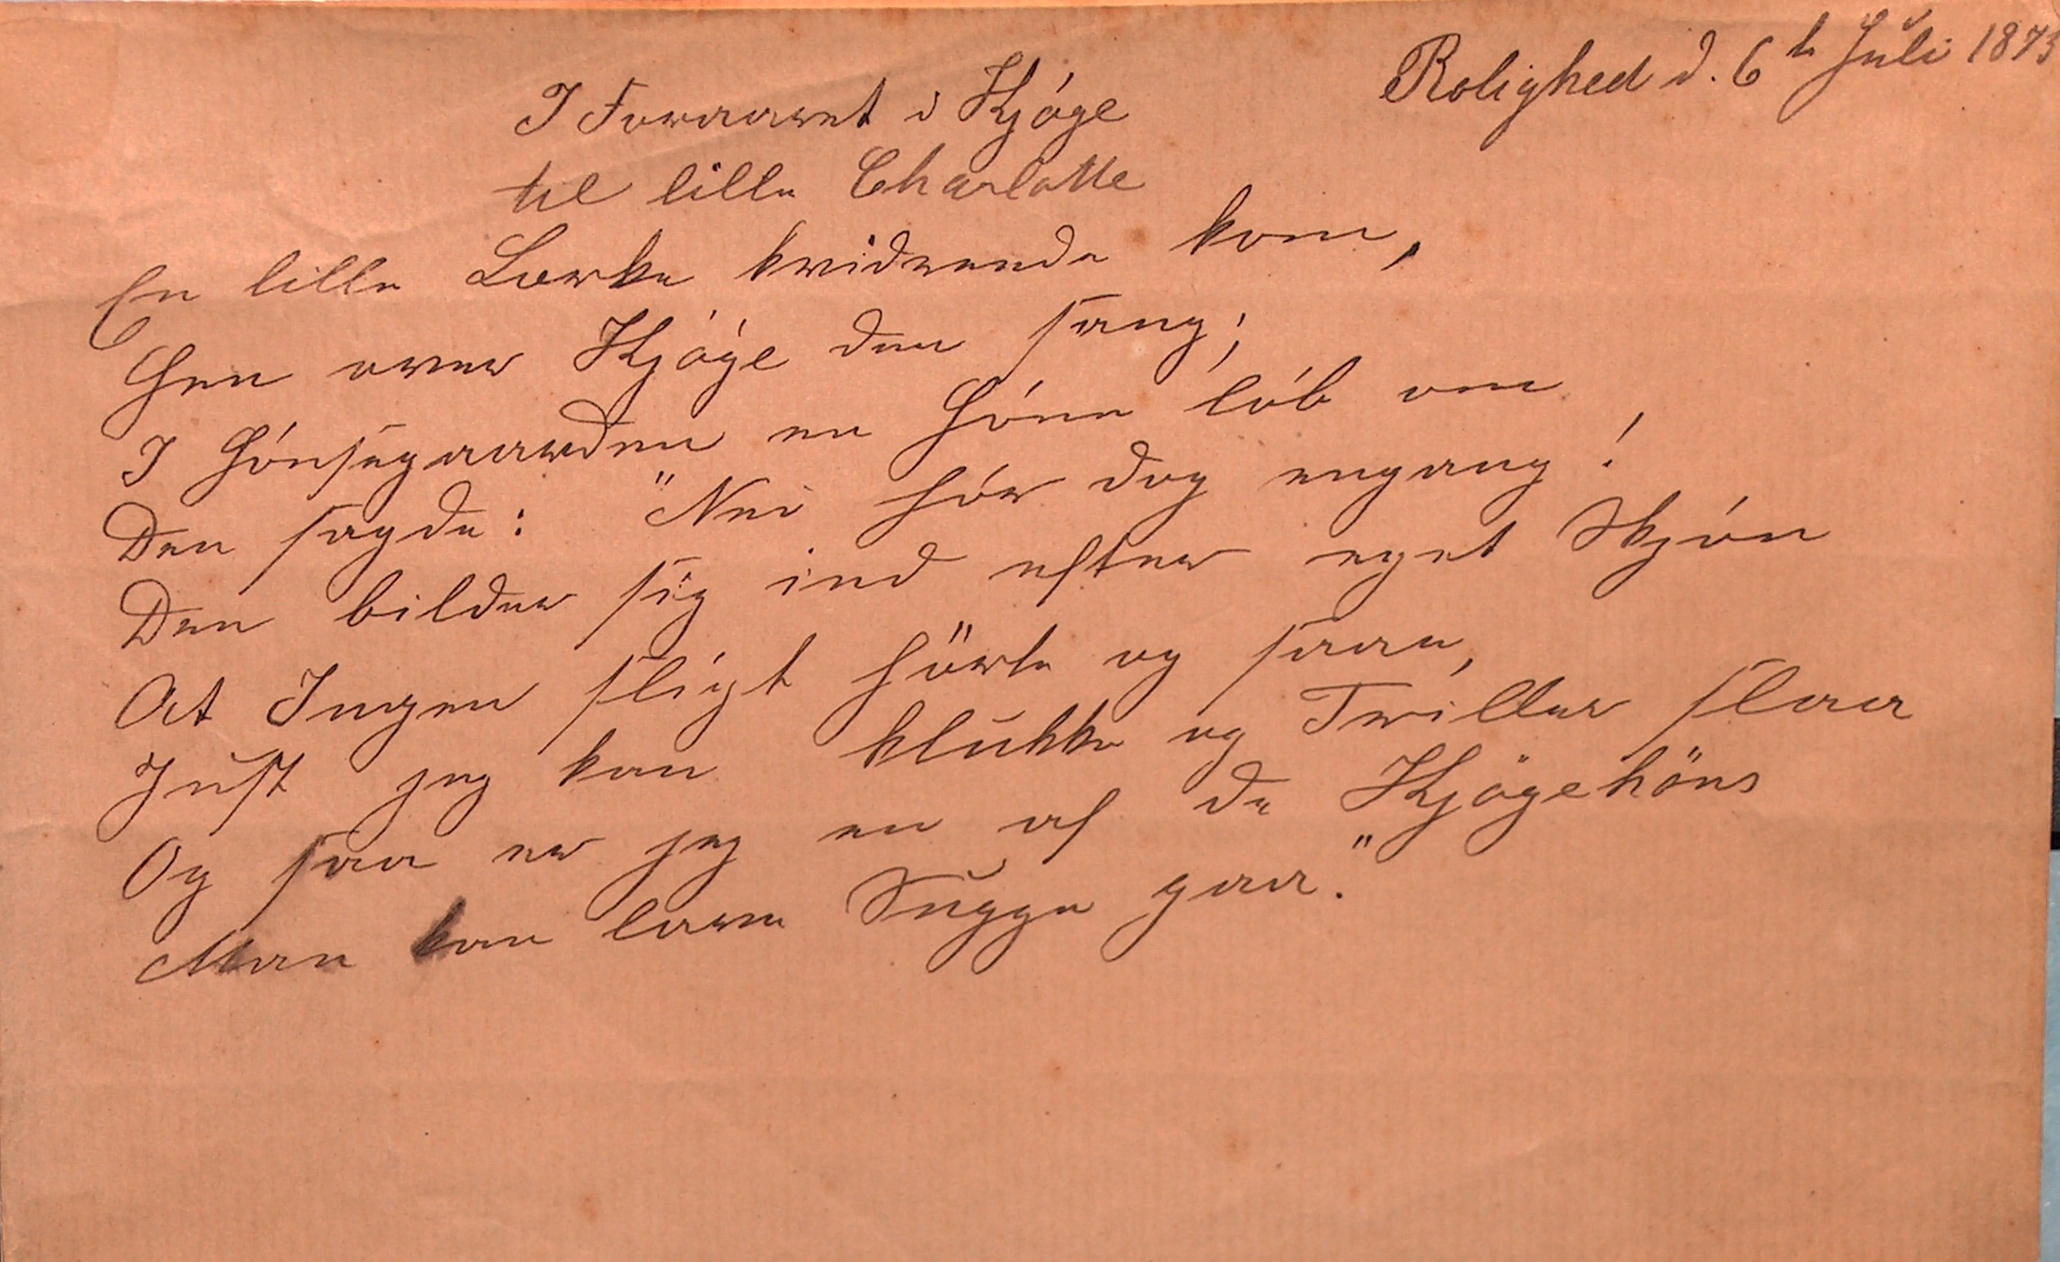 Rolighed d. 6te Juli 1873
I Foraaret i Kjøge
til lille Charlotte
En lille Lærke kvidrende kom,
Hen over Kjøge den sang;
I Hønsegaarden en Høne løb om
Den sagde: "Nei hør dog engang!
Den bilder sig ind efter eget Skjøn
At Ingen sligt hørte og saae,
Just jeg kan klukke og Triller slaa
Og saa er jeg en af de Kjøgehöns
Man kan lære Sugge gaa."